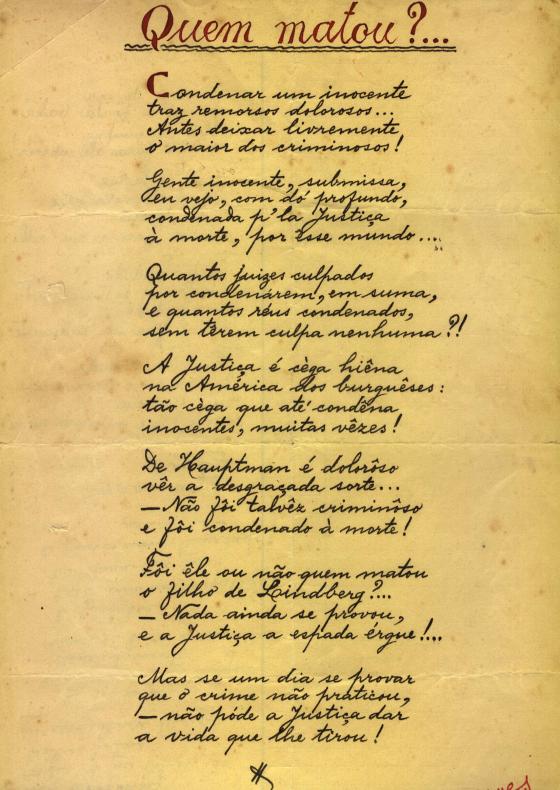 Quem matou?...
Condenar um inocente
traz remorsos dolorosos...
Antes deixar livremente
o maior dos criminosos!
Gente inocente, submissa,
eu vejo, com dó profundo,
condenada p'la Justiça
à morte, por êsse mundo....
Quantos juizes culpados
por condenárem, em suma,
e quantos réus condenados,
sem têrem culpa nenhuma?!
A Justiça é cèga hiêna
na América dos burguêses:
tão cèga que até condêna
inocentes, muitas vêzes!
De Hauptman é dolorôso
vêr a desgraçada sorte...
— Não fôi talvêz criminôso
e fôi condenado à morte!
Fôi êle ou não quem matou
o filho de Lindberg?...
— Nada ainda se provou,
e a Justiça a espada érgue!...
Mas se um dia se provar
que o crime não praticou,
— não póde a Justiça dar
a vida que lhe tirou!